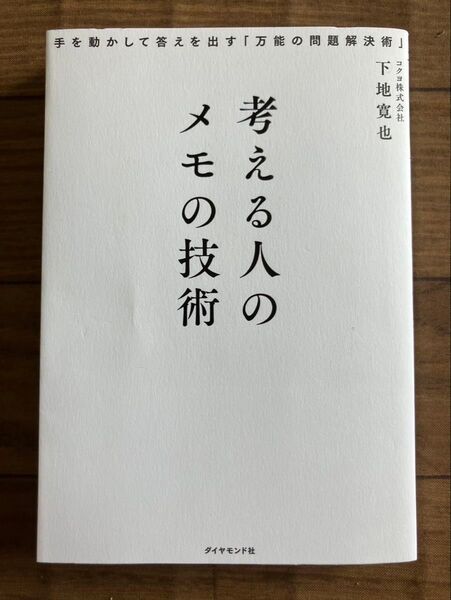 手を動かして答えを出す「万能の問題解決術」
コクヨ株式会社
下地寛也
考える人の
メモの技術
ダイヤモンド社